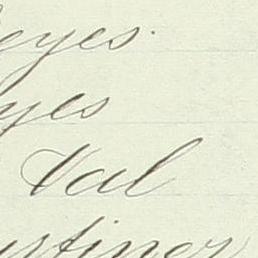 eyes.
yes
Val
stiner